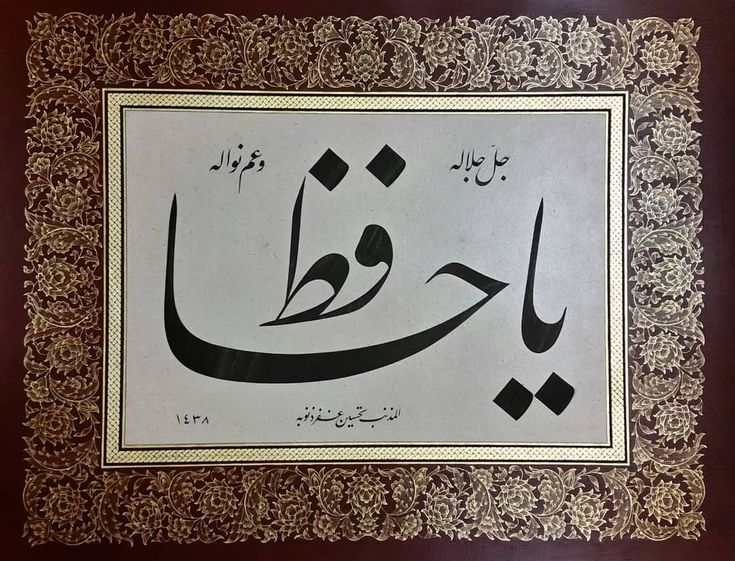 جلّ جلاله وعم نواله
يا حافظ
المذنب تحسين غفر ذنوبه
١٤٣٨